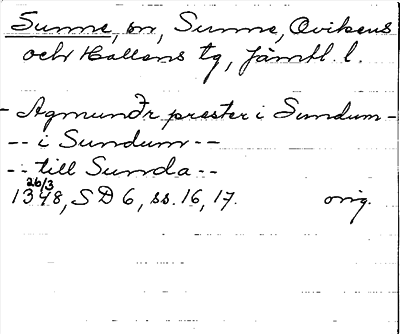 Sunne, sn, Sunne, Ovikens
och Hallens tg, Jämtl. l.
- Agmundr prester i Sundum -
-- i Sundum --
-- till Sunda --
26/3
1348, SD 6, ss. 16, 17. orig.